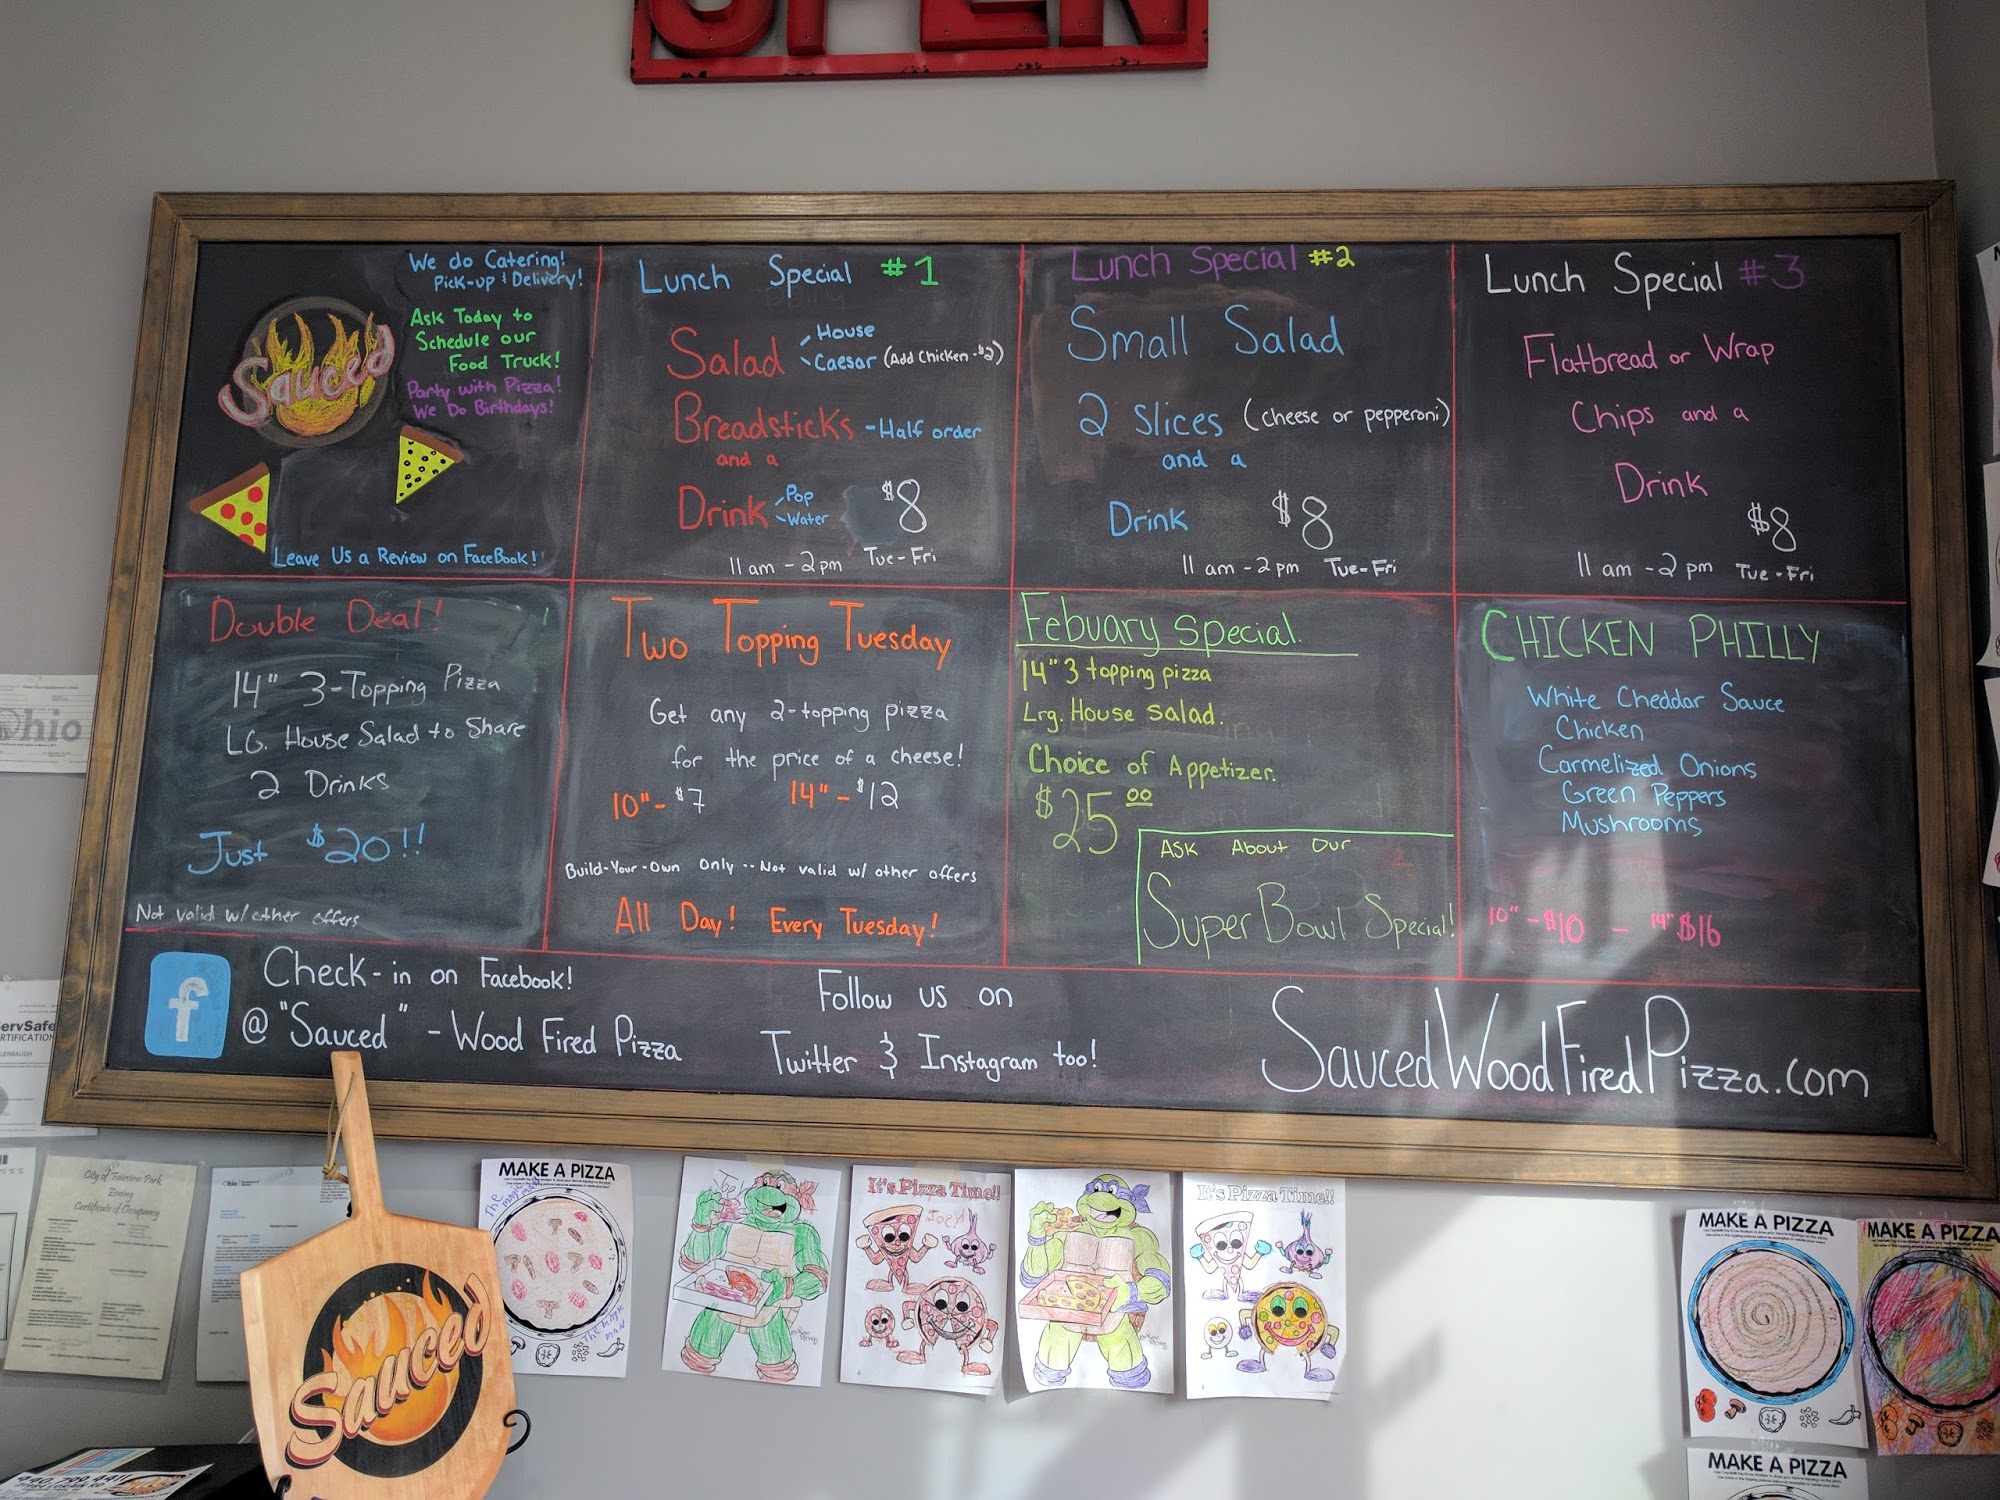 OPEN
Sauced
We do Catering!
Pick-up & Delivery!
Ask Today to
Schedule our
Food Truck!
Party with Pizza!
We Do Birthdays!
Leave Us a Review on FaceBook!
Lunch Special #1
Salad
House
Caesar (Add Chicken - $2)
Breadsticks - Half order
and a
Drink
Pop
Water
$8
11 am - 2 pm Tue - Fri
Lunch Special #2
Small Salad
2 Slices (cheese or pepperoni)
and a
Drink $8
11 am - 2 pm Tue - Fri
Lunch Special #3
Flatbread or Wrap
Chips and a
Drink
$8
11 am - 2 pm Tue - Fri
Double Deal!
14" 3-Topping Pizza
LG. House Salad to Share
2 Drinks
Just $20!!
Not valid w/ other offers
Two Topping Tuesday
Get any 2-topping pizza
for the price of a cheese!
10" - $7 14" - $12
Build-Your-Own Only -- Not valid w/ other offers
All Day! Every Tuesday!
Febuary Special.
14" 3 topping pizza
Lrg. House salad.
Choice of Appetizer.
$25.00
Ask About Our
Super Bowl Special!
CHICKEN PHILLY
White Cheddar Sauce
Chicken
Carmelized Onions
Green Peppers
Mushrooms
10" - $10 - 14" $16
f
Check-in on Facebook!
@ "Sauced" - Wood Fired Pizza
Follow us on
Twitter & Instagram too!
SaucedWoodFiredPizza.com
Ohio
ServSafe
CERTIFICATION
City of Fairview Park
Zoning
Certificate of Occupancy
Ohio
Sauced
MAKE A PIZZA
It's Pizza Time!!
It's Pizza Time!!
MAKE A PIZZA
MAKE A PIZZA
MAKE A PIZZA